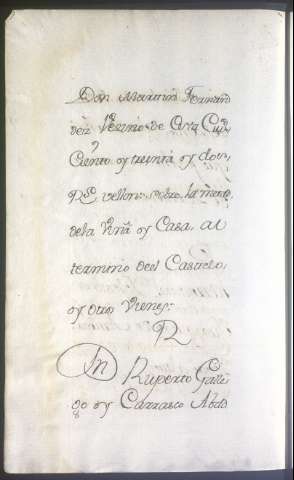 Don Martin Fernand
den Vecino de
Ciento y treinta y dos,
Rs. vellon: sobre la mitad
dela Viña y Casa, al
termino del Castelo,
y otros Vienes:
R
Dn Ruperto Galle
go y Carrasco Abdo